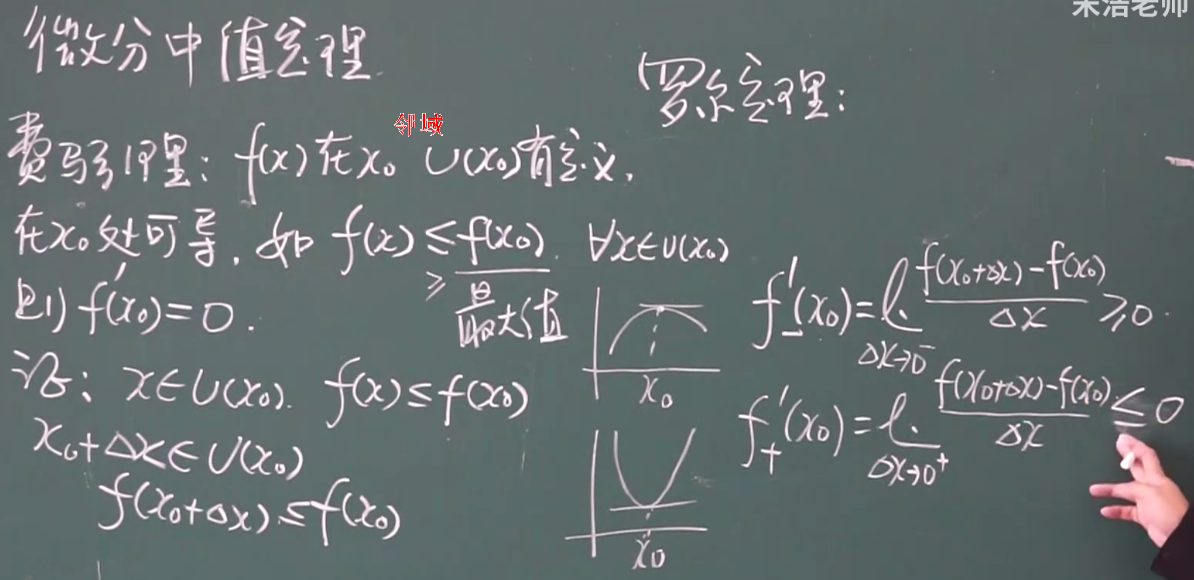 宋浩老师
微分中值定理
罗尔定理：
邻域
费马引理：f(x)在x₀ U(x₀)有定义,
在x₀处可导, 如 f(x)≤f(x₀) ∀x∈U(x₀)
≥ 最大值
则 f'(x₀)=0.
证：x∈U(x₀). f(x)≤f(x₀)
x₀+Δx∈U(x₀)
f(x₀+Δx)≤f(x₀)
x₀
x₀
f'₋(x₀)=l. f(x₀+Δx)-f(x₀) / Δx ≥0.
Δx→0⁻
f'₊(x₀)=l. f(x₀+Δx)-f(x₀) / Δx ≤0
Δx→0⁺